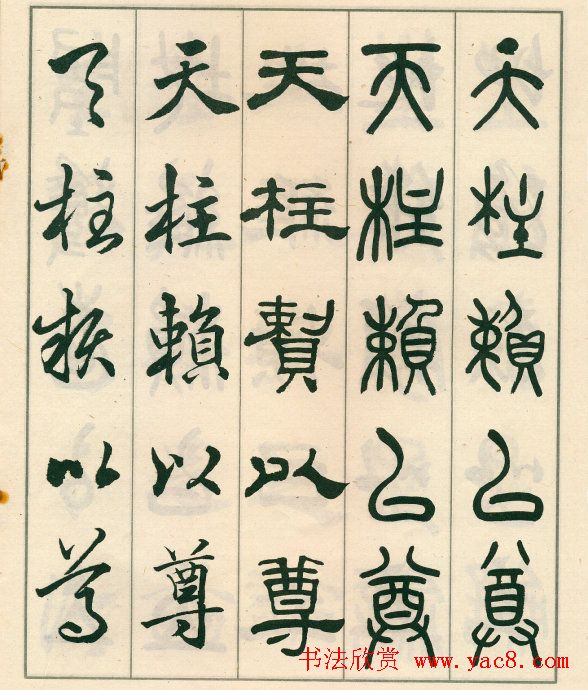 天柱賴以尊
天柱賴以尊
天柱賴以尊
天柱賴以尊
天柱賴以尊
书法欣赏 www.yac8.com